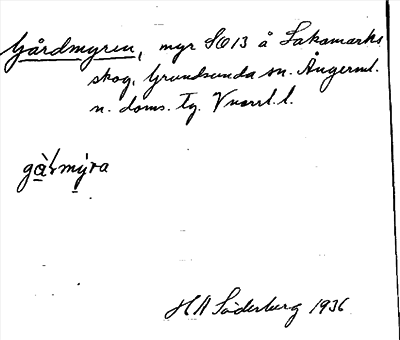 Gårdmyren, myr SO 13 å Laksmarks
skog, Grundsunda sn. Ångerml.
n. doms. tg. Vnorrl. l.
HA Söderberg 1936